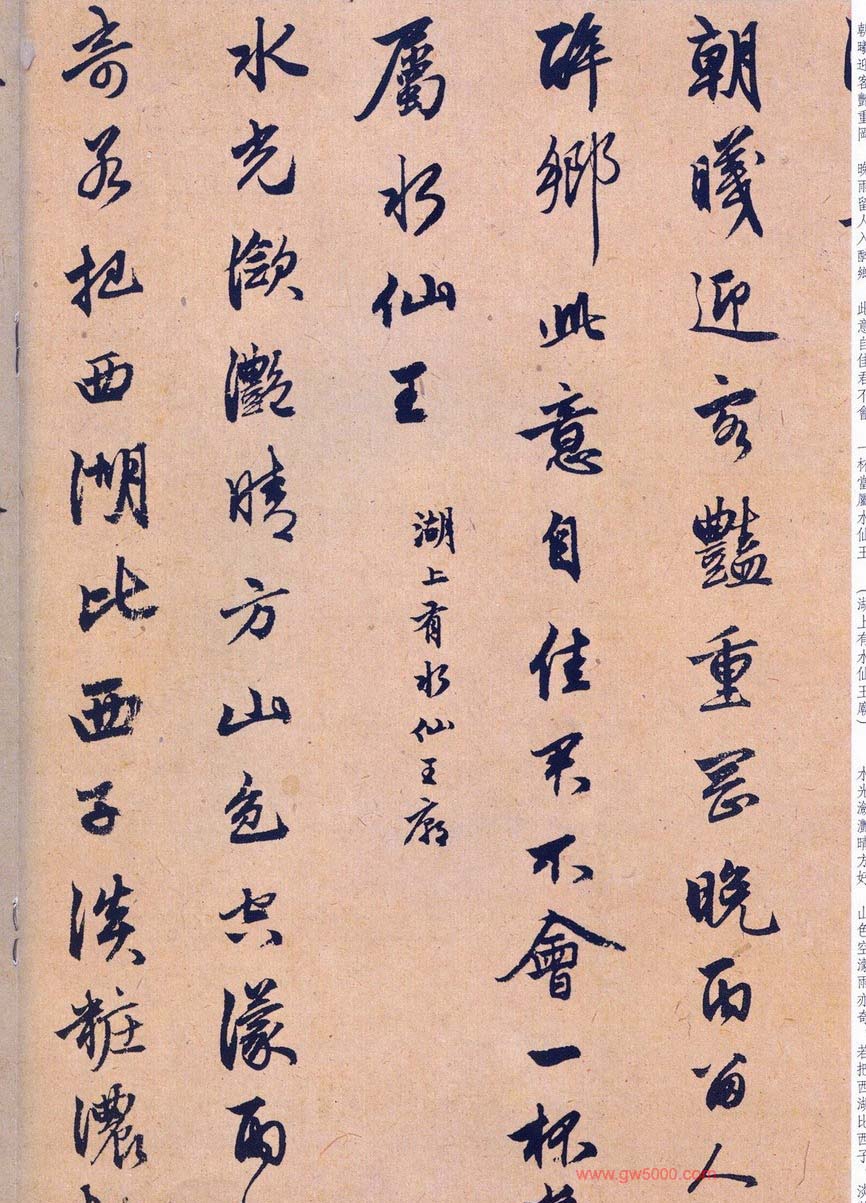 朝曦迎客艷重岡　晚雨留人入醉鄉　此意自佳君不會　一杯當屬水仙王　(湖上有水仙王廟)　水光瀲灩晴方好　山色空濛雨亦奇　若把西湖比西子
朝曦迎客豔重岡晚雨留人
醉鄉此意自佳君不會一杯
屬水仙王
湖上有水仙王廟
水光瀲灩晴方山色空濛雨
奇若把西湖比西子淡粧濃
www.gw5000.com